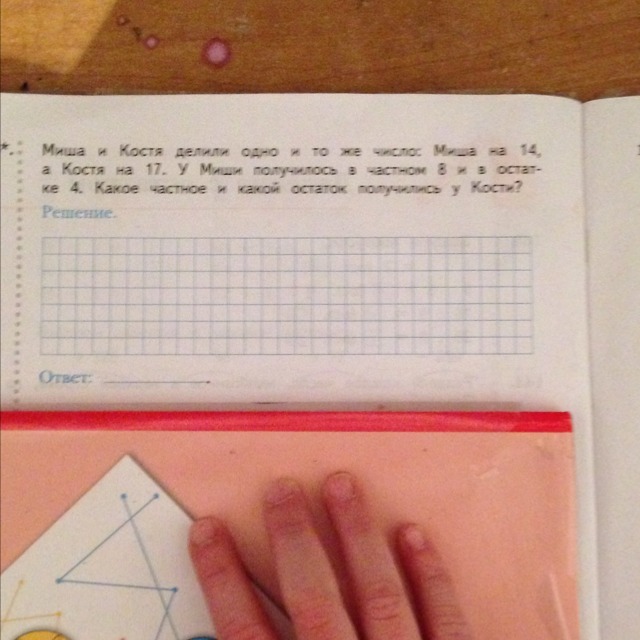 *.
Миша и Костя делили одно и то же число: Миша на 14,
а Костя на 17. У Миши получилось в частном 8 и в остат-
ке 4. Какое частное и какой остаток получились у Кости?
Решение.
Ответ: